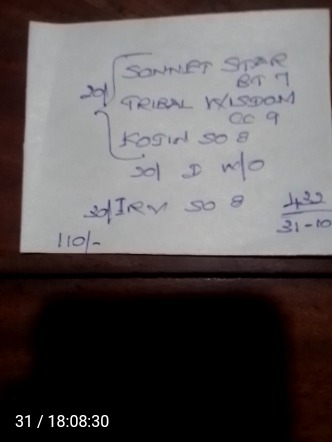 SONNET STAR
BT 7
20/ TRIBAL WISDOM
CC 9
KOSIN SO 8
20/ D W/O
30/ IRVI SO 8
432
31-10
110/-
31 / 18:08:30